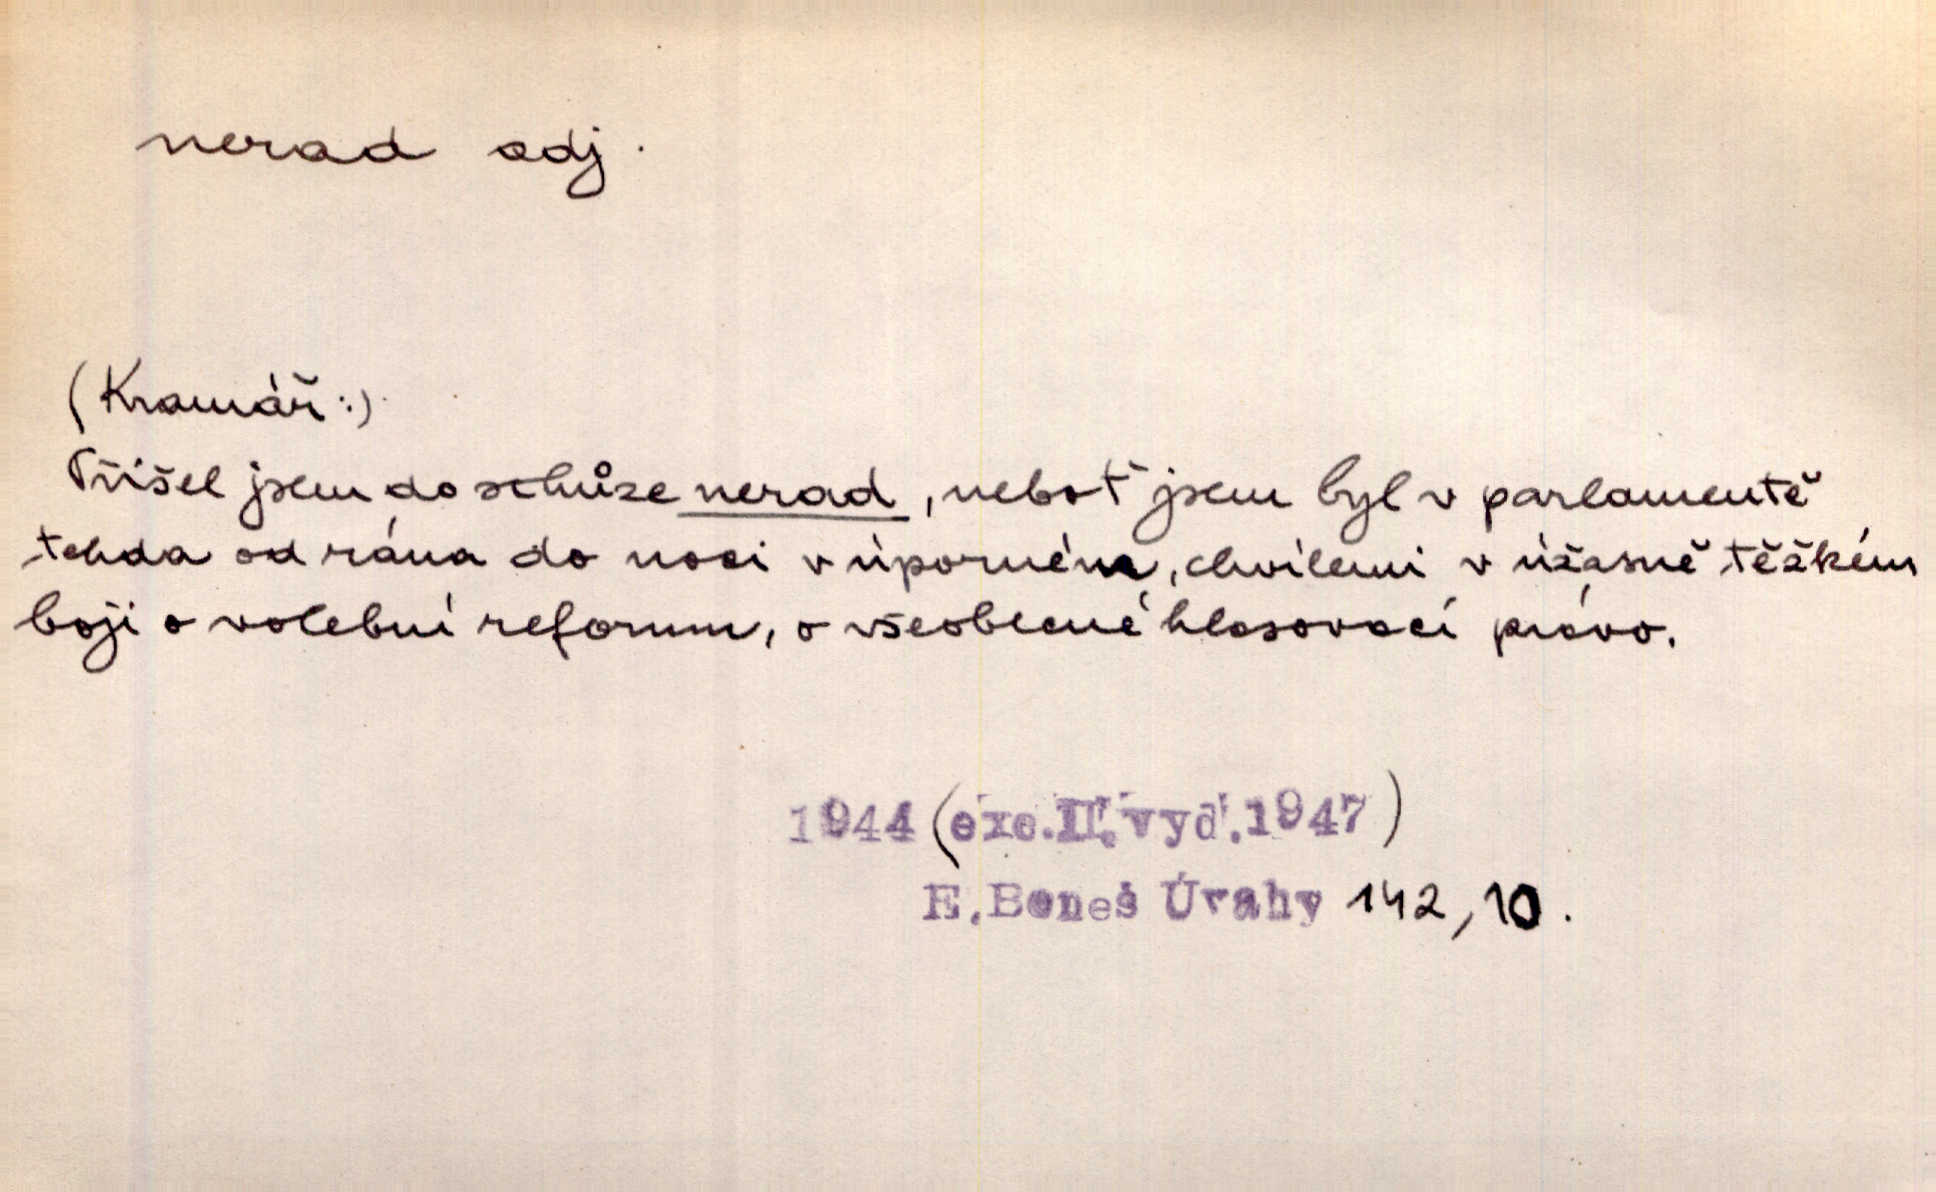 nerad adj.
(Kramář:)
Přišel jsem do schůze nerad, neboť jsem byl v parlamentě
tehda od rána do noci v úporném, chvílemi v úžasně těžkém
boji o volební reformu, o všeobecné hlasovací právo.
1944 (exc. II. vyd. 1947)
E. Beneš Úvahy 142, 10.